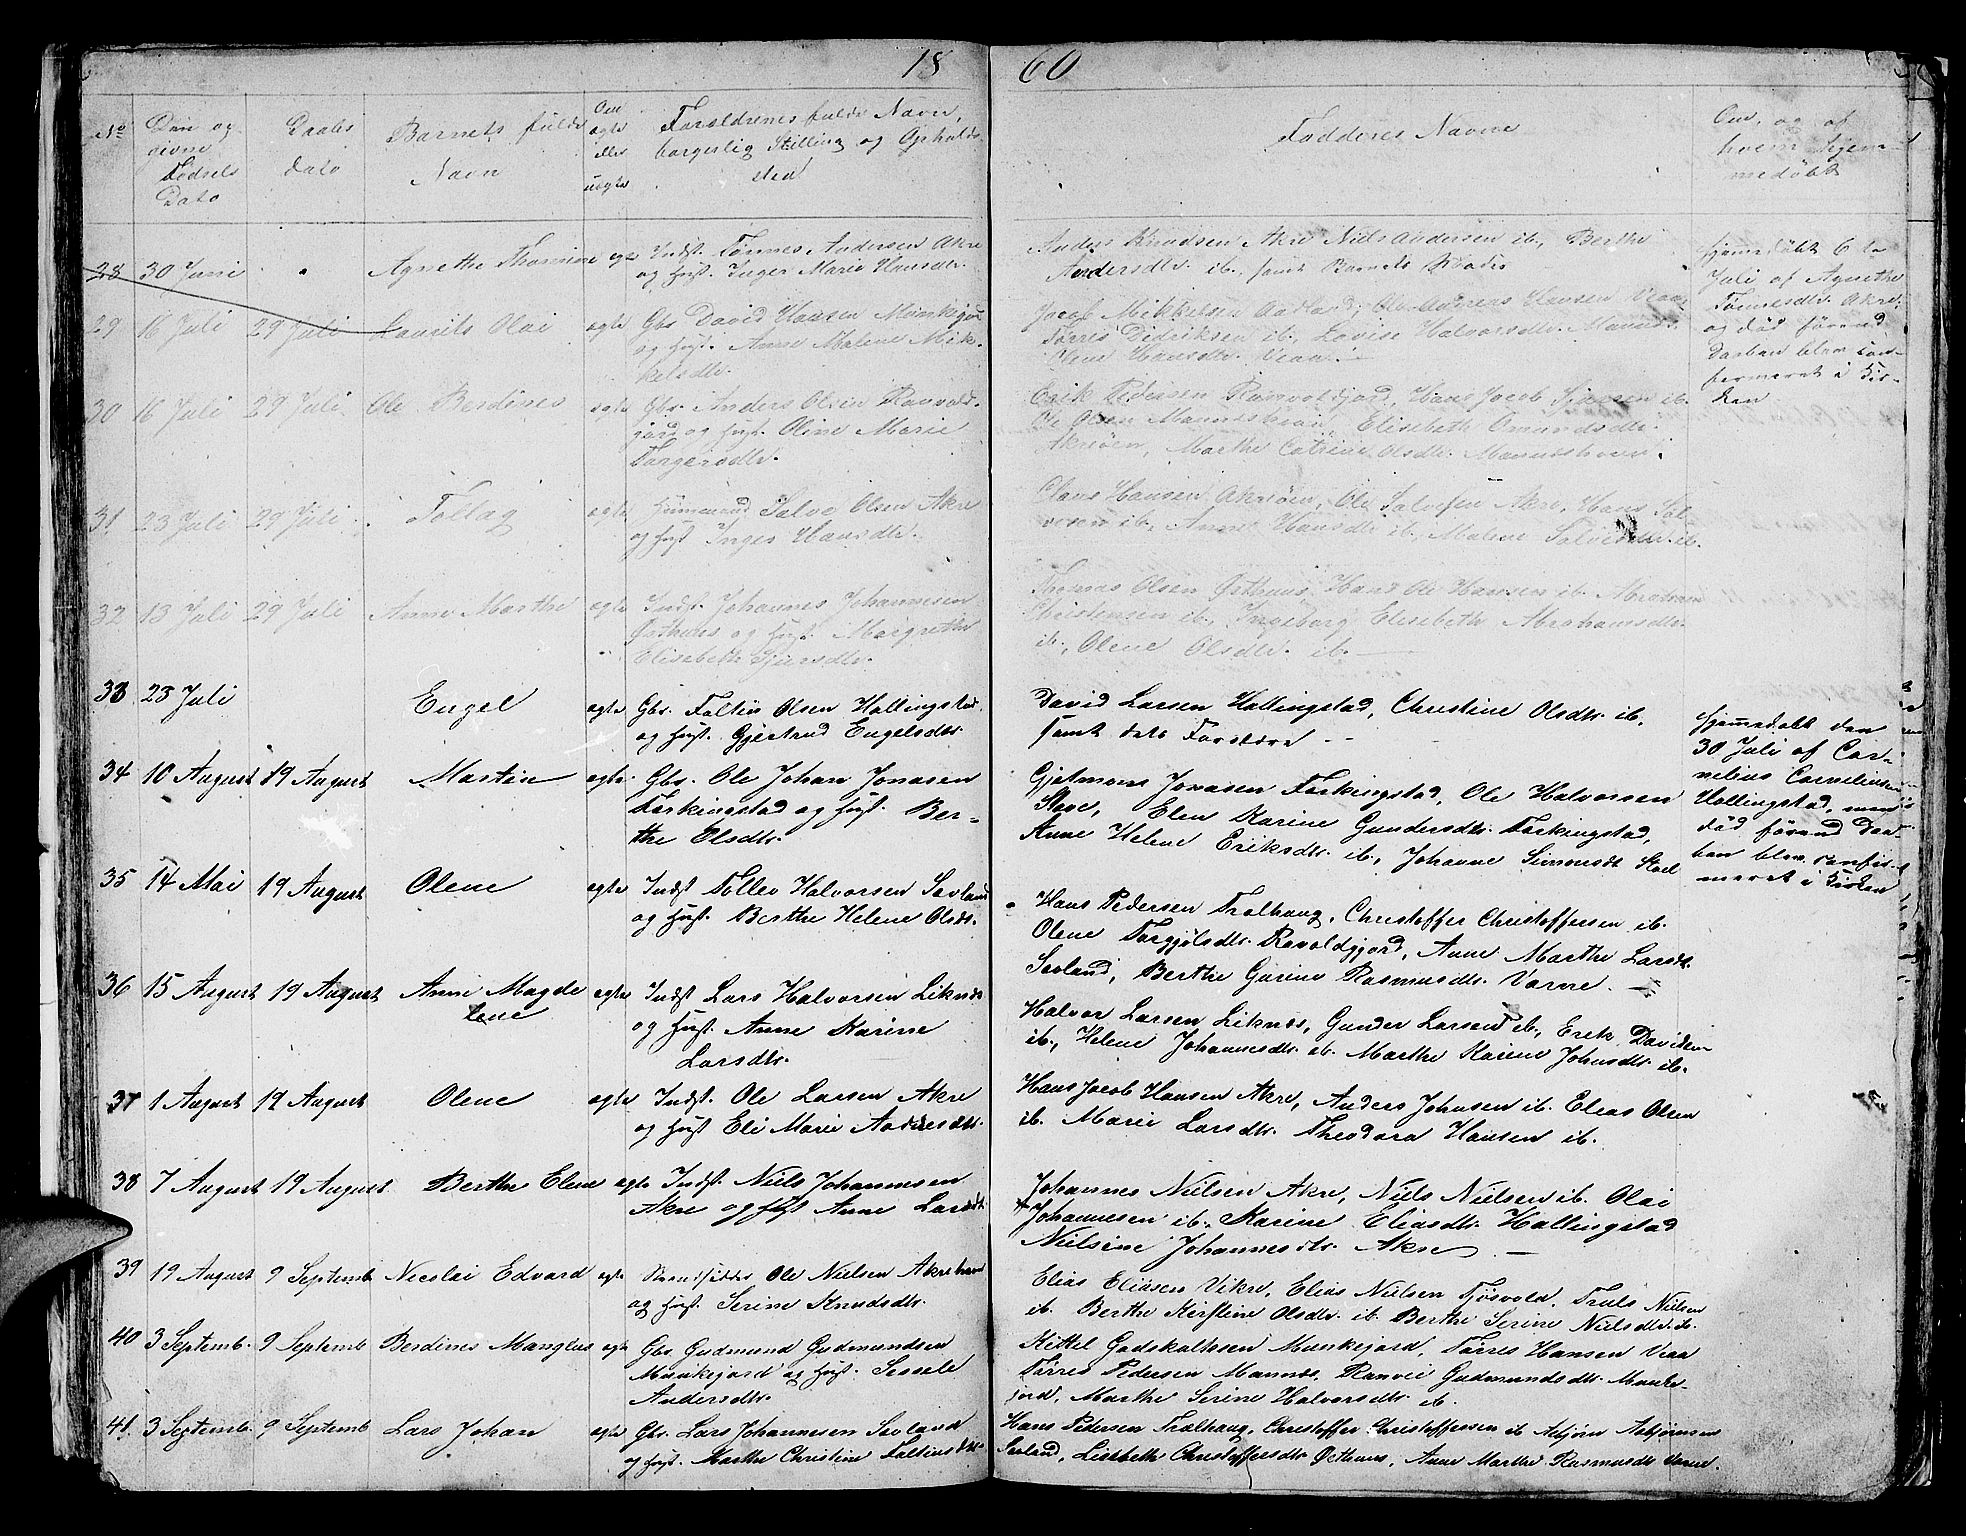 18 60
No
Den og
givne
Fødsels
Dato
Daabs
dato
Barnets fulde
Navn
Om
ægte
eller
uægte
Forældrenes fulde Navn,
borgerlig Stilling og Opholds
sted
Faddernes Navne
Om, og af
hvem hjem-
medøbt
28 30 Juni Agnethe Thomine egte Indst. Tønnes Andersen Akre
og Hust. Inger Marie Hansdtr.
Anders Knudsen Akre Niels Andersen ib., Berthe
Andersdtr. ib. samt Barnets Moder
Hjemmedøbt 6te
Juli af Agnethe
Tønnesdtr. Akre,
og død førend
Daaben blev con-
fermeret i Kir-
ken
29 16 Juli 29 Juli Laurits Olai ægte Gbr David Hansen Munkejor
og Hust. Anne Malene Mik-
kelsdtr.
Jacob Mikkelsen Aadland, Ole Andreas Hansen Veaa
Tørres Didriksen ib. Lovise Halvorsdtr. Mannes
Olene Hansdtr. Veaa
30 16 Juli 29 Juli Ole Berdines ægte Gbr. Anders Olsen Ranvold-
gjord og Hust. Oline Marie
Torgersdtr.
Erik Pedersen Ranvoldgjord, Hans Jacob
Ole Olsen Elisebeth Omundsdtr.
Akrøen, Marthe Catrine Olsdtr.
31 23 Juli 29 Juli Tollag ægte Huusmand Salve Olsen Akre
og Hust Inger Hansdtr.
Claus Hansen Akrøen, Ole Salvesen Akre, Hans Sal-
vesen ib., Anne Hansdtr ib., Malene Salvesdtr. ib.
32 13 Juli 29 Juli Anne Marthe ægte Indst. Johannes Johannesen
Østhuus og Hust. Margrethe
Elisebeth
Thomas Olsen Østhuus, Hans Ole Hansen ib. Abraham
Christensen ib., Ingeborg Elisebeth Abrahamsdtr.
ib., Olene Olsdtr. ib.
33 23 Juli Engel ægte Gbr. Foltin Olsen Hallingstad,
og Hust. Gjertrud Engelsdtr.
David Larsen Hallingstad, Christine Olsdtr. ib.
samt dets Forældre
Hjemmedøbt den
30 Juli af Cor-
nelius Corneliusen
Hallingstad, men
død førend Daa-
ben blev confir-
meret i Kirken
34 10 August 19 August Martin ægte Gbr. Ole Johan Jonasen
Ferkingstad og Hust. Ber-
the Olsdtr.
Jonasen Ferkingstad, Ole Halvorsen
Steve, Elen Karine Gundersdtr. Ferkingstad,
Anne Helene Eriksdtr. ib., Johanne Simonsdt
35 14 Mai 19 August Olene ægte Indst Tollev Halvorsen Sevland
og Hust. Berthe Helene Olsdt.
Hans Pedersen Trælhaug, Christoffer Christoffersen ib.
Olene Torgjølsdtr. Ravoldgjord, Anne Marthe Larsdt.
Sevland, Berthe Gurine Rasmusdtr. Varne.
36 15 August 19 August Anne Magde
lene ægte Indst Lars Halvorsen Liknes
og Hust. Anne Karine
Larsdtr.
Halvor Larsen Liknes, Gunder Larsen ib., Erik Davidsen
ib., Helene Johannesdtr. ib. Marthe Karine Johnsdtr. ib.
37 1 August 19 August Olene ægte Indst. Ole Larsen Akre
og Hust Eli Marie Andersdtr.
Hans Jacob Hansen Akre, Anders Johnsen ib. Elias Olsen
ib. Marie Larsdtr. Theodora Hansen ib.
38 7 August 19 August Berthe Elene ægte Indst. Niels Johannesen
Akre og Hust Anne Larsdt.
Johannes Nielsen Akre, Niels Nielsen ib. Olai
Johannesen ib., Karine Eliasdtr. Hallingstad
Nielsine Johannesdtr. Akre
39 19 August 9 Septemb Nicolai Edvard egte Strandsidder Ole Nielsen Akrehavn
og Hust. Serine Knudsdtr.
Elias Eliasen Vikre, Elias Nielsen Tjøsvold, Truls Nielsen
ib. Berthe Kirstine Olsdtr. ib. Berthe Serine Nielsdtr. ib.
40 3 Septemb. 9 Septemb Berdines Manglus egte Gbr Gudmund Gudmundsen
Munkejord og Hust. Sessele
Andersdtr.
Kittel Godskalksen Munkejord, Tørres Hansen Veaa
Tørres Pedersen Mannes, Ranvei Gudmundsdtr. Munke-
jord, Marthe Serine Halvorsdtr. ib.
41. 3 Septemb. 9 Septemb Lars Johan ægte Gbr. Lars Johannesen Sevland
og Hust. Marthe Christine Foltinsdtr
Hans Pedersen Trælhaug, Christoffer Christoffersen ib Asbjørn Asbjørnsen
Sevland, Lisebeth Christoffersdtr Østhuus, Anne Marthe Rasmusdtr Varne.